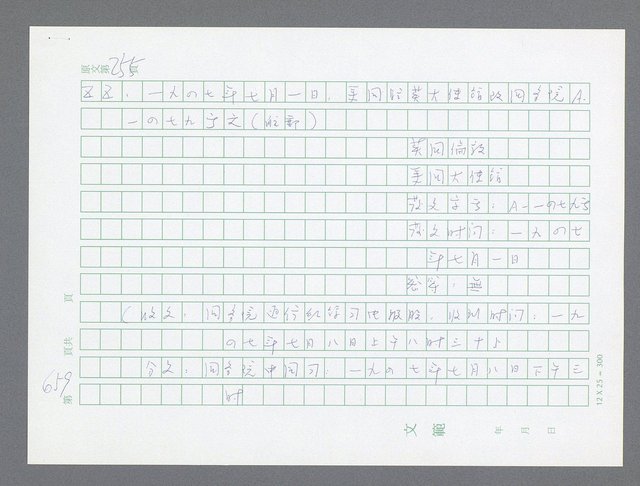 原文第255頁
五五、一九四七年七月一日,美国驻英大使馆致国务院A.
一四七九号文(航邮)
英国倫敦
美国大使馆
发文字号:A-一四七九号
发文时间:一九四七
年七月一日
密等:無
(收文:国务院通信纪录司电报股,收到时间:一九
四七年七月八日上午八时三十分
分文:国务院中国司:一九四七年七月八日下午三
时
頁
頁共
第659
文範
年 月 日
12 X 25 = 300